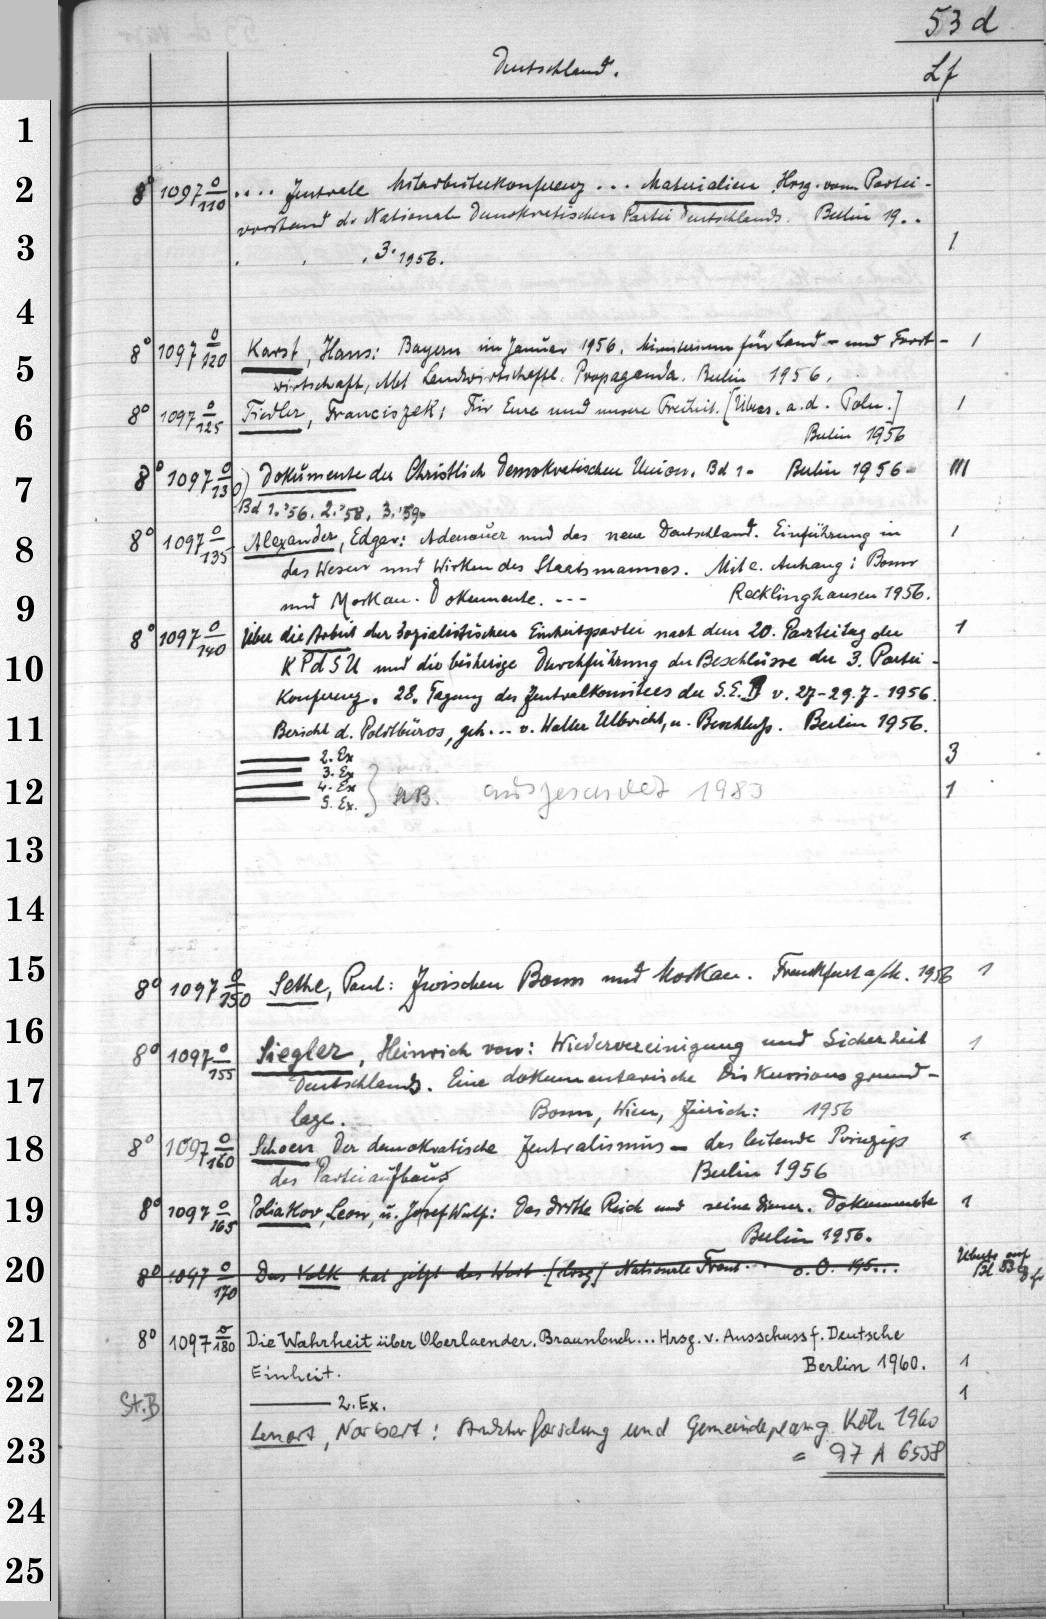 53 d
Deutschland.
Lf
1
2
8° 1097 0/110 .... Zentrale Mitarbeiterkonferenz ... Materialien. Hrsg. vom Partei-
vorstand d. National-Demokratischen Partei Deutschlands. Berlin 19..
3
. . , 3. 1956. 1
4
8° 1097 0/120 Karst, Hans: Bayern im Januar 1956. Ministerium für Land- und Forst- 1
5
wirtschaft, Abt Landwirtschaftl. Propaganda. Berlin 1956.
8° 1097 0/125 Fiedler, Franciszek: Für Eure und unsere Freiheit. [Übers. a. d. Poln.] 1
6
Berlin 1956
8° 1097 0/130 Dokumente der Christlich Demokratischen Union. Bd 1- Berlin 1956- III
7
Bd 1.'56. 2.'58. 3.'59.
8° 1097 0/135 Alexander, Edgar: Adenauer und das neue Deutschland. Einführung in 1
8
das Wesen und Wirken des Staatsmannes. Mit e. Anhang: Bonn
und Moskau. Dokumente. --- Recklinghausen 1956.
9
8° 1097 0/140 Über die Arbeit der Sozialistischen Einheitspartei nach dem 20. Parteitag der 1
10
KPdSU und die bisherige Durchführung der Beschlüsse der 3. Partei-
Konferenz. 28. Tagung des Zentralkomitees der S.E.D v. 27-29.7.1956.
11
Bericht d. Politbüros, geh... v. Walter Ulbricht, u. Beschluß. Berlin 1956.
2. Ex 3
3. Ex
12
4. Ex ausgesondert 1983 1
5. Ex.
13
14
15
8° 1097 0/150 Sethe, Paul: Zwischen Bonn und Moskau. Frankfurt a/M. 1956 1
16
8° 1097 0/155 Siegler, Heinrich von: Wiedervereinigung und Sicherheit 1
17
Deutschlands. Eine dokumentarische Diskussionsgrund-
lage. Bonn, Wien, Zürich: 1956
18
8° 1097 0/160 Schoen Der demokratische Zentralismus - das leitende Prinzip 1
des Parteiaufbaus Berlin 1956
19
8° 1097 0/165 Poliakov, Leon, u. Josef Wulf: Das dritte Reich und seine Diener. Dokumente 1
Berlin 1956.
20
8° 1097 0/170 Das Volk hat jetzt das Wort. (Hrsg) Nationale Front... o.O. 195... Übertr. auf
Bl 53
21
8° 1097 0/180 Die Wahrheit über Oberlaender. Braunbuch... Hrsg. v. Ausschuss f. Deutsche
Einheit. Berlin 1960. 1
22
St.B 2. Ex. 1
Lenort, Norbert: Strukturforschung und Gemeindeplang Köln 1960
23
= 97 A 6558
24
25